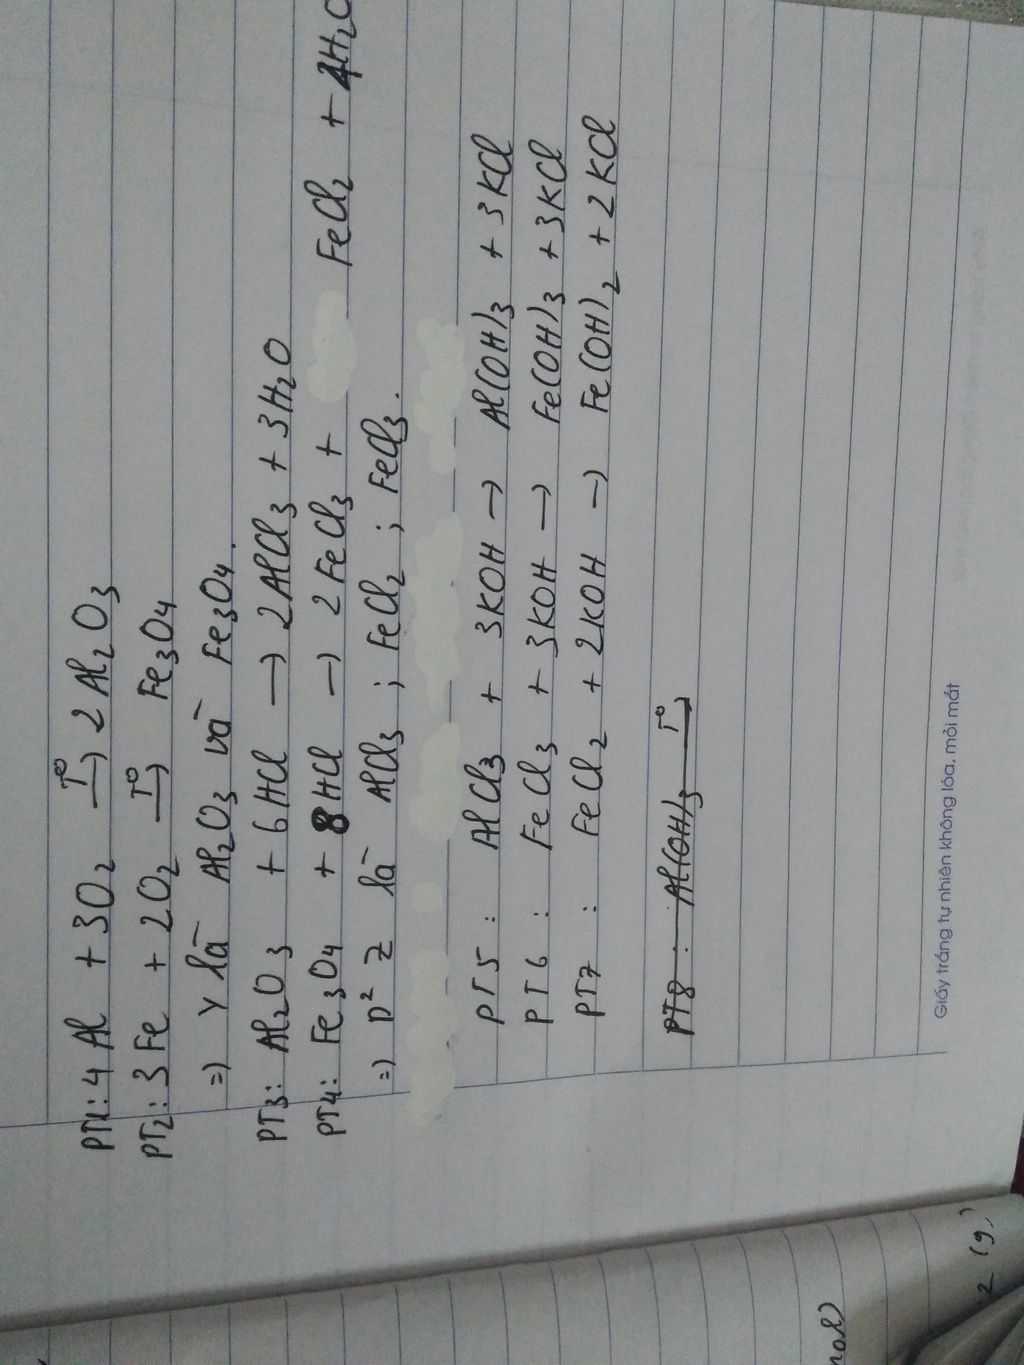 PT1: 4Al + 3O₂ —T°→ 2Al₂O₃
PT2: 3Fe + 2O₂ —T°→ Fe₃O₄
=) Y là Al₂O₃ và Fe₃O₄.
PT3: Al₂O₃ + 6HCl → 2AlCl₃ + 3H₂O
PT4: Fe₃O₄ + 8HCl → 2FeCl₃ + FeCl₂ + 4H₂O
=) D² Z là AlCl₃ ; FeCl₂ ; FeCl₃.
PT5 : AlCl₃ + 3KOH → Al(OH)₃ + 3KCl
PT6 : FeCl₃ + 3KOH → Fe(OH)₃ + 3KCl
PT7 : FeCl₂ + 2KOH → Fe(OH)₂ + 2KCl
PT8 : Al(OH)₃ —T°→
Giấy trắng tự nhiên không lóa, mỏi mắt
2 (g)